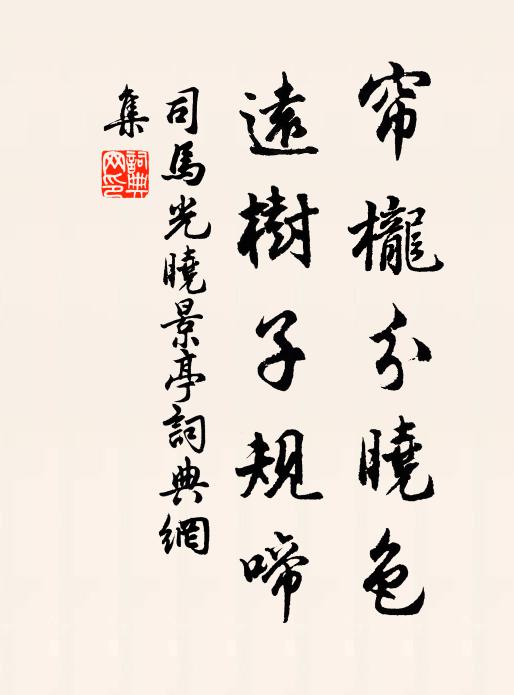 帘櫳分曉色
遠樹子規啼
司馬光曉景亭詞典網
集
詞典網印